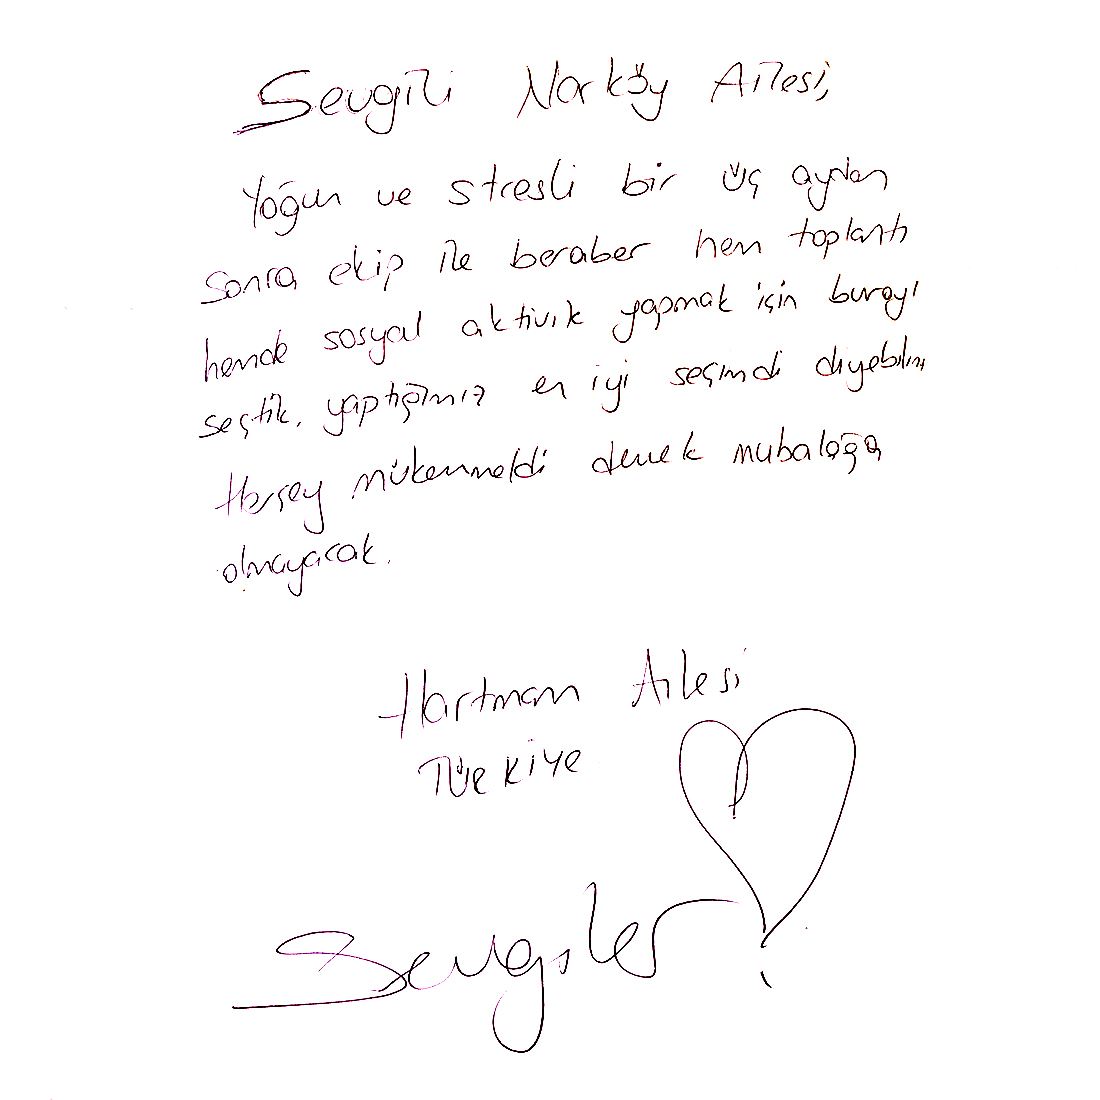 Sevgili Narköy Ailesi,
Yoğun ve stresli bir üç aydan
sonra ekip ile beraber hem toplantı
hemde sosyal aktivik yapmak için burayı
seçtik. yaptığımız en iyi seçimdi diyebilirim
Herşey mükemmeldi demek mubalağa
olmayacak.
Hartman Ailesi
Türkiye
Sevgiler